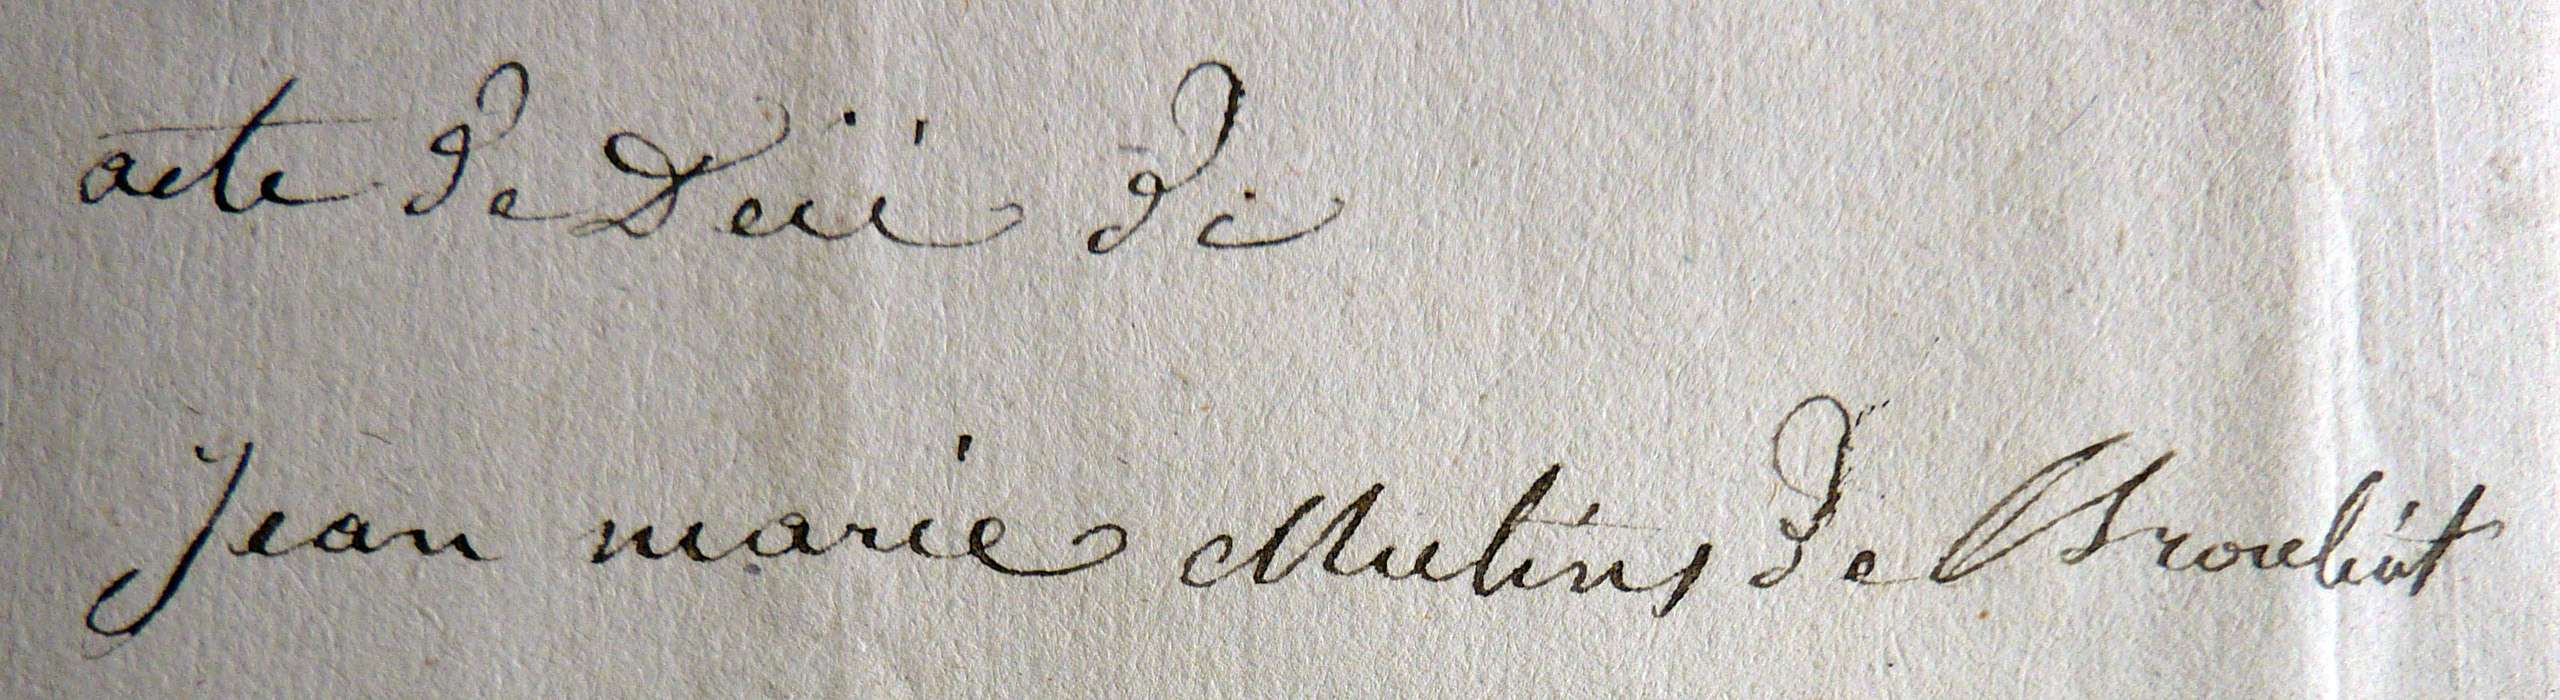 acte de Déci de
Jean marie Mulins de Broulint